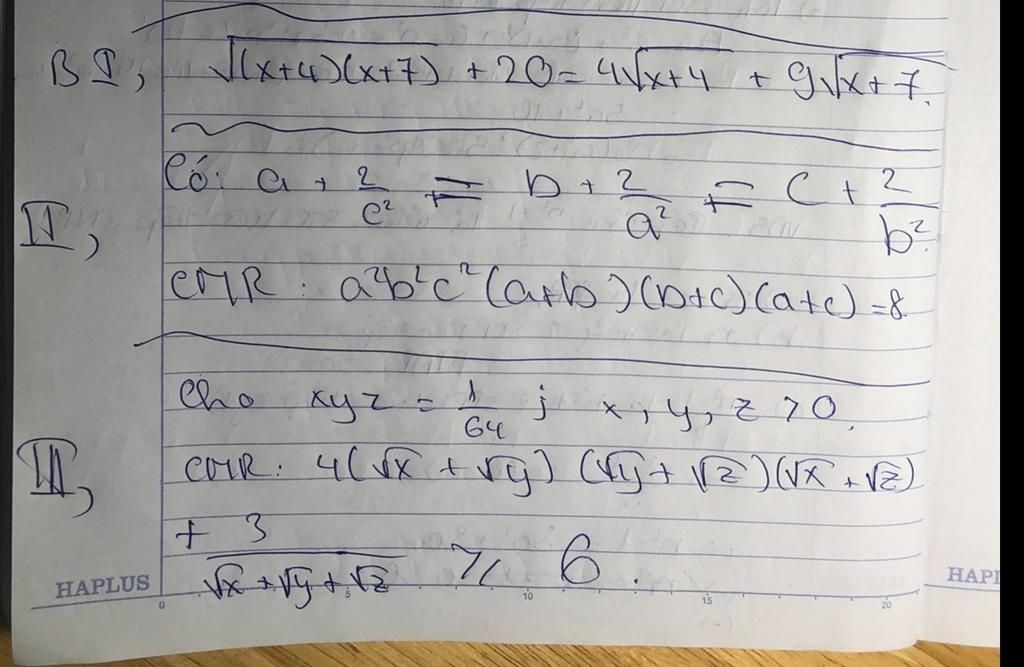 B I, √(x+4)(x+7) + 20 = 4√x+4 + 9√x+7.
Có: a + 2/c² = b + 2/a² = c + 2/b².
II,
CMR: a²b²c²(a+b)(b+c)(a+c) = 8.
Cho xyz = 1/64 ; x, y, z > 0.
III, CMR: 4(√x + √y)(√y + √z)(√x + √z)
+ 3/(√x + √y + √z) ≥ 6.
HAPLUS 0 5 10 15 20 HAPL